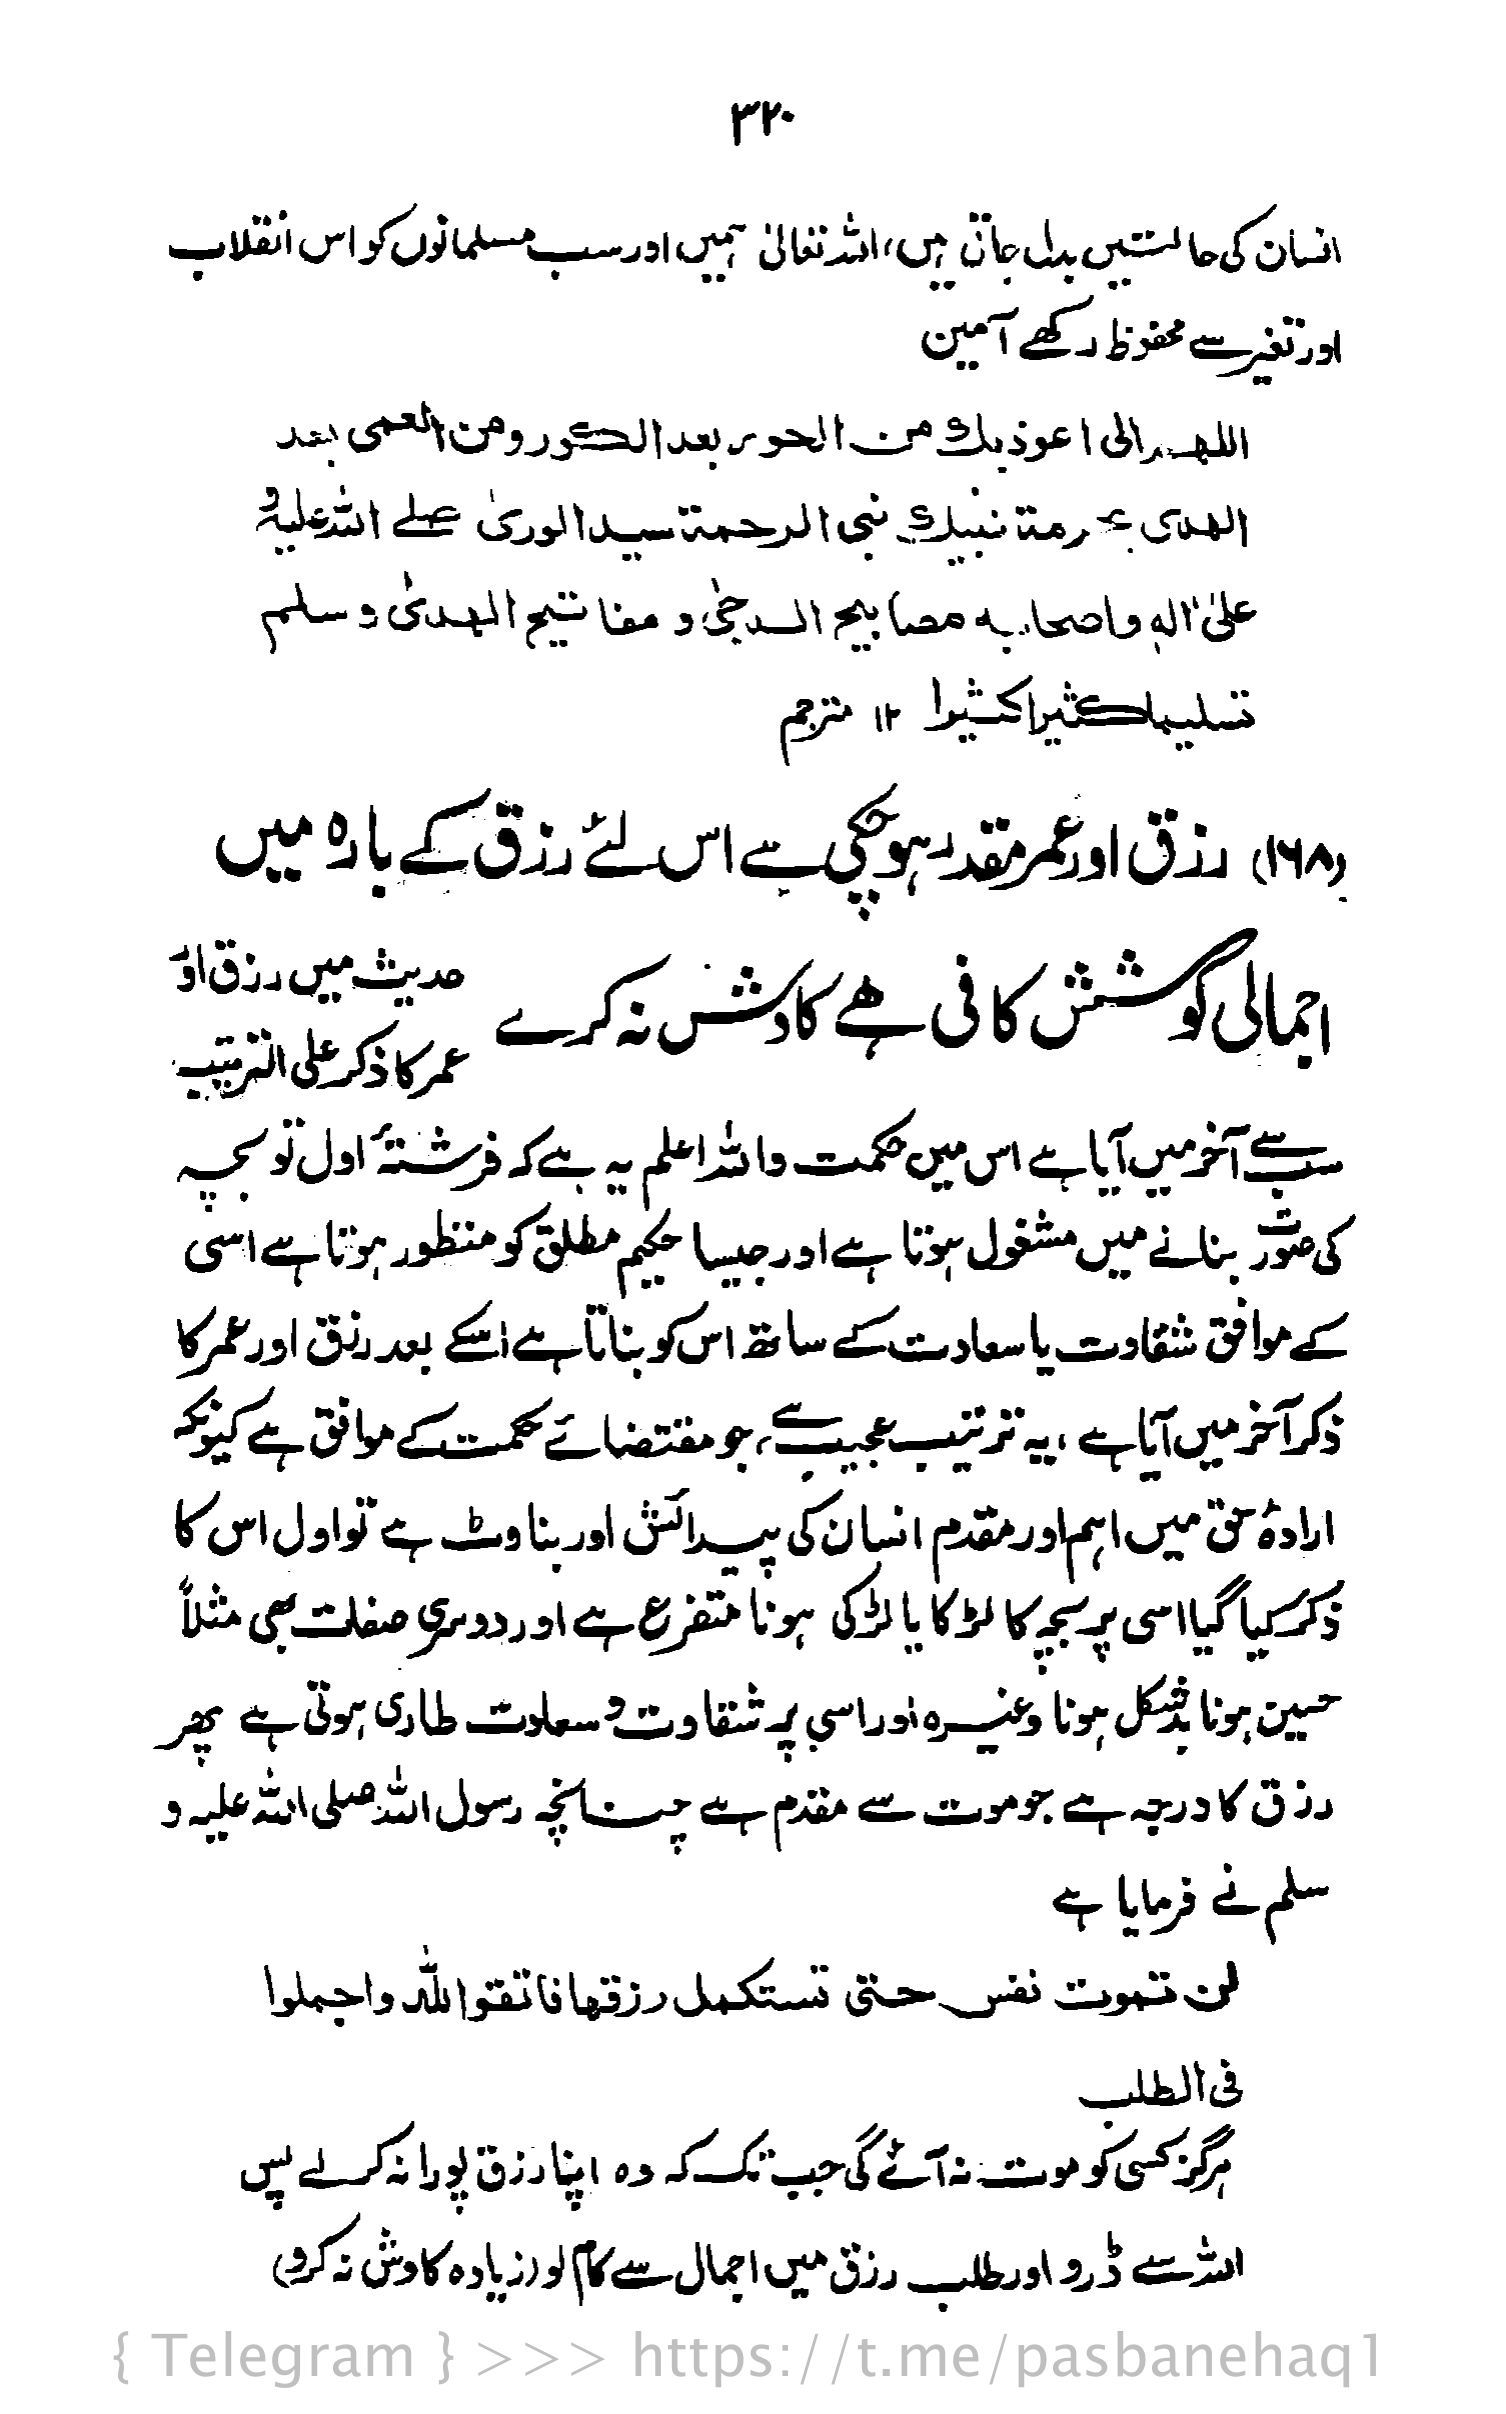 ۳۲۰
انسان کی حالتیں بدل جاتی ہیں، اللہ تعالیٰ ہمیں اور سب مسلمانوں کو اس انقلاب
اور تغیر سے محفوظ رکھے آمین
اللهم انی اعوذ بك من الحور بعد الكور ومن العمی بعد
الهدی بحرمة نبيك نبی الرحمة سيد الوریٰ صلے اللہ علیہ و
علیٰ اٰله واصحابه مصابيح الدجیٰ و مفاتيح الهدیٰ و سلم
تسليما كثيرا كثيرا ۱۲ مترجم
(۱۶۸) رزق اور عمر مقدر ہوچکی ہے اس لئے رزق کے بارہ میں
اجمالی کوشش کافی ہے کاوش نہ کرے
حدیث میں رزق اور
عمر کا ذکر علی الترتیب
سب سے آخر میں آیا ہے اس میں حکمت واللہ اعلم یہ ہے کہ فرشتۂ اول تو بچہ
کی صورت بنانے میں مشغول ہوتا ہے اور جیسا حکیم مطلق کو منظور ہوتا ہے اسی
کے موافق شقاوت یا سعادت کے ساتھ اس کو بناتا ہے اسکے بعد رزق اور عمر کا
ذکر آخر میں آیا ہے، یہ ترتیب عجیب ہے، جو مقتضائے حکمت کے موافق ہے کیونکہ
ارادۂ حق میں اہم اور مقدم انسان کی پیدائش اور بناوٹ ہے تو اول اس کا
ذکر کیا گیا اسی پر بچہ کا لڑکا یا لڑکی ہونا متفرع ہے اور دوسری صفات بھی مثلاً
حسین ہونا بدشکل ہونا وغیرہ اور اسی پر شقاوت و سعادت طاری ہوتی ہے پھر
رزق کا درجہ ہے جو موت سے مقدم ہے چنانچہ رسول اللہ صلی اللہ علیہ و
سلم نے فرمایا ہے
لن تموت نفس حتی تستكمل رزقها فاتقوا الله واجملوا
فی الطلب
ہرگز کسی کو موت نہ آئے گی جب تک کہ وہ اپنا رزق پورا نہ کر لے پس
اللہ سے ڈرو اور طلب رزق میں اجمال سے کام لو (زیادہ کاوش نہ کرو)
{ Telegram } >>> https://t.me/pasbanehaq1